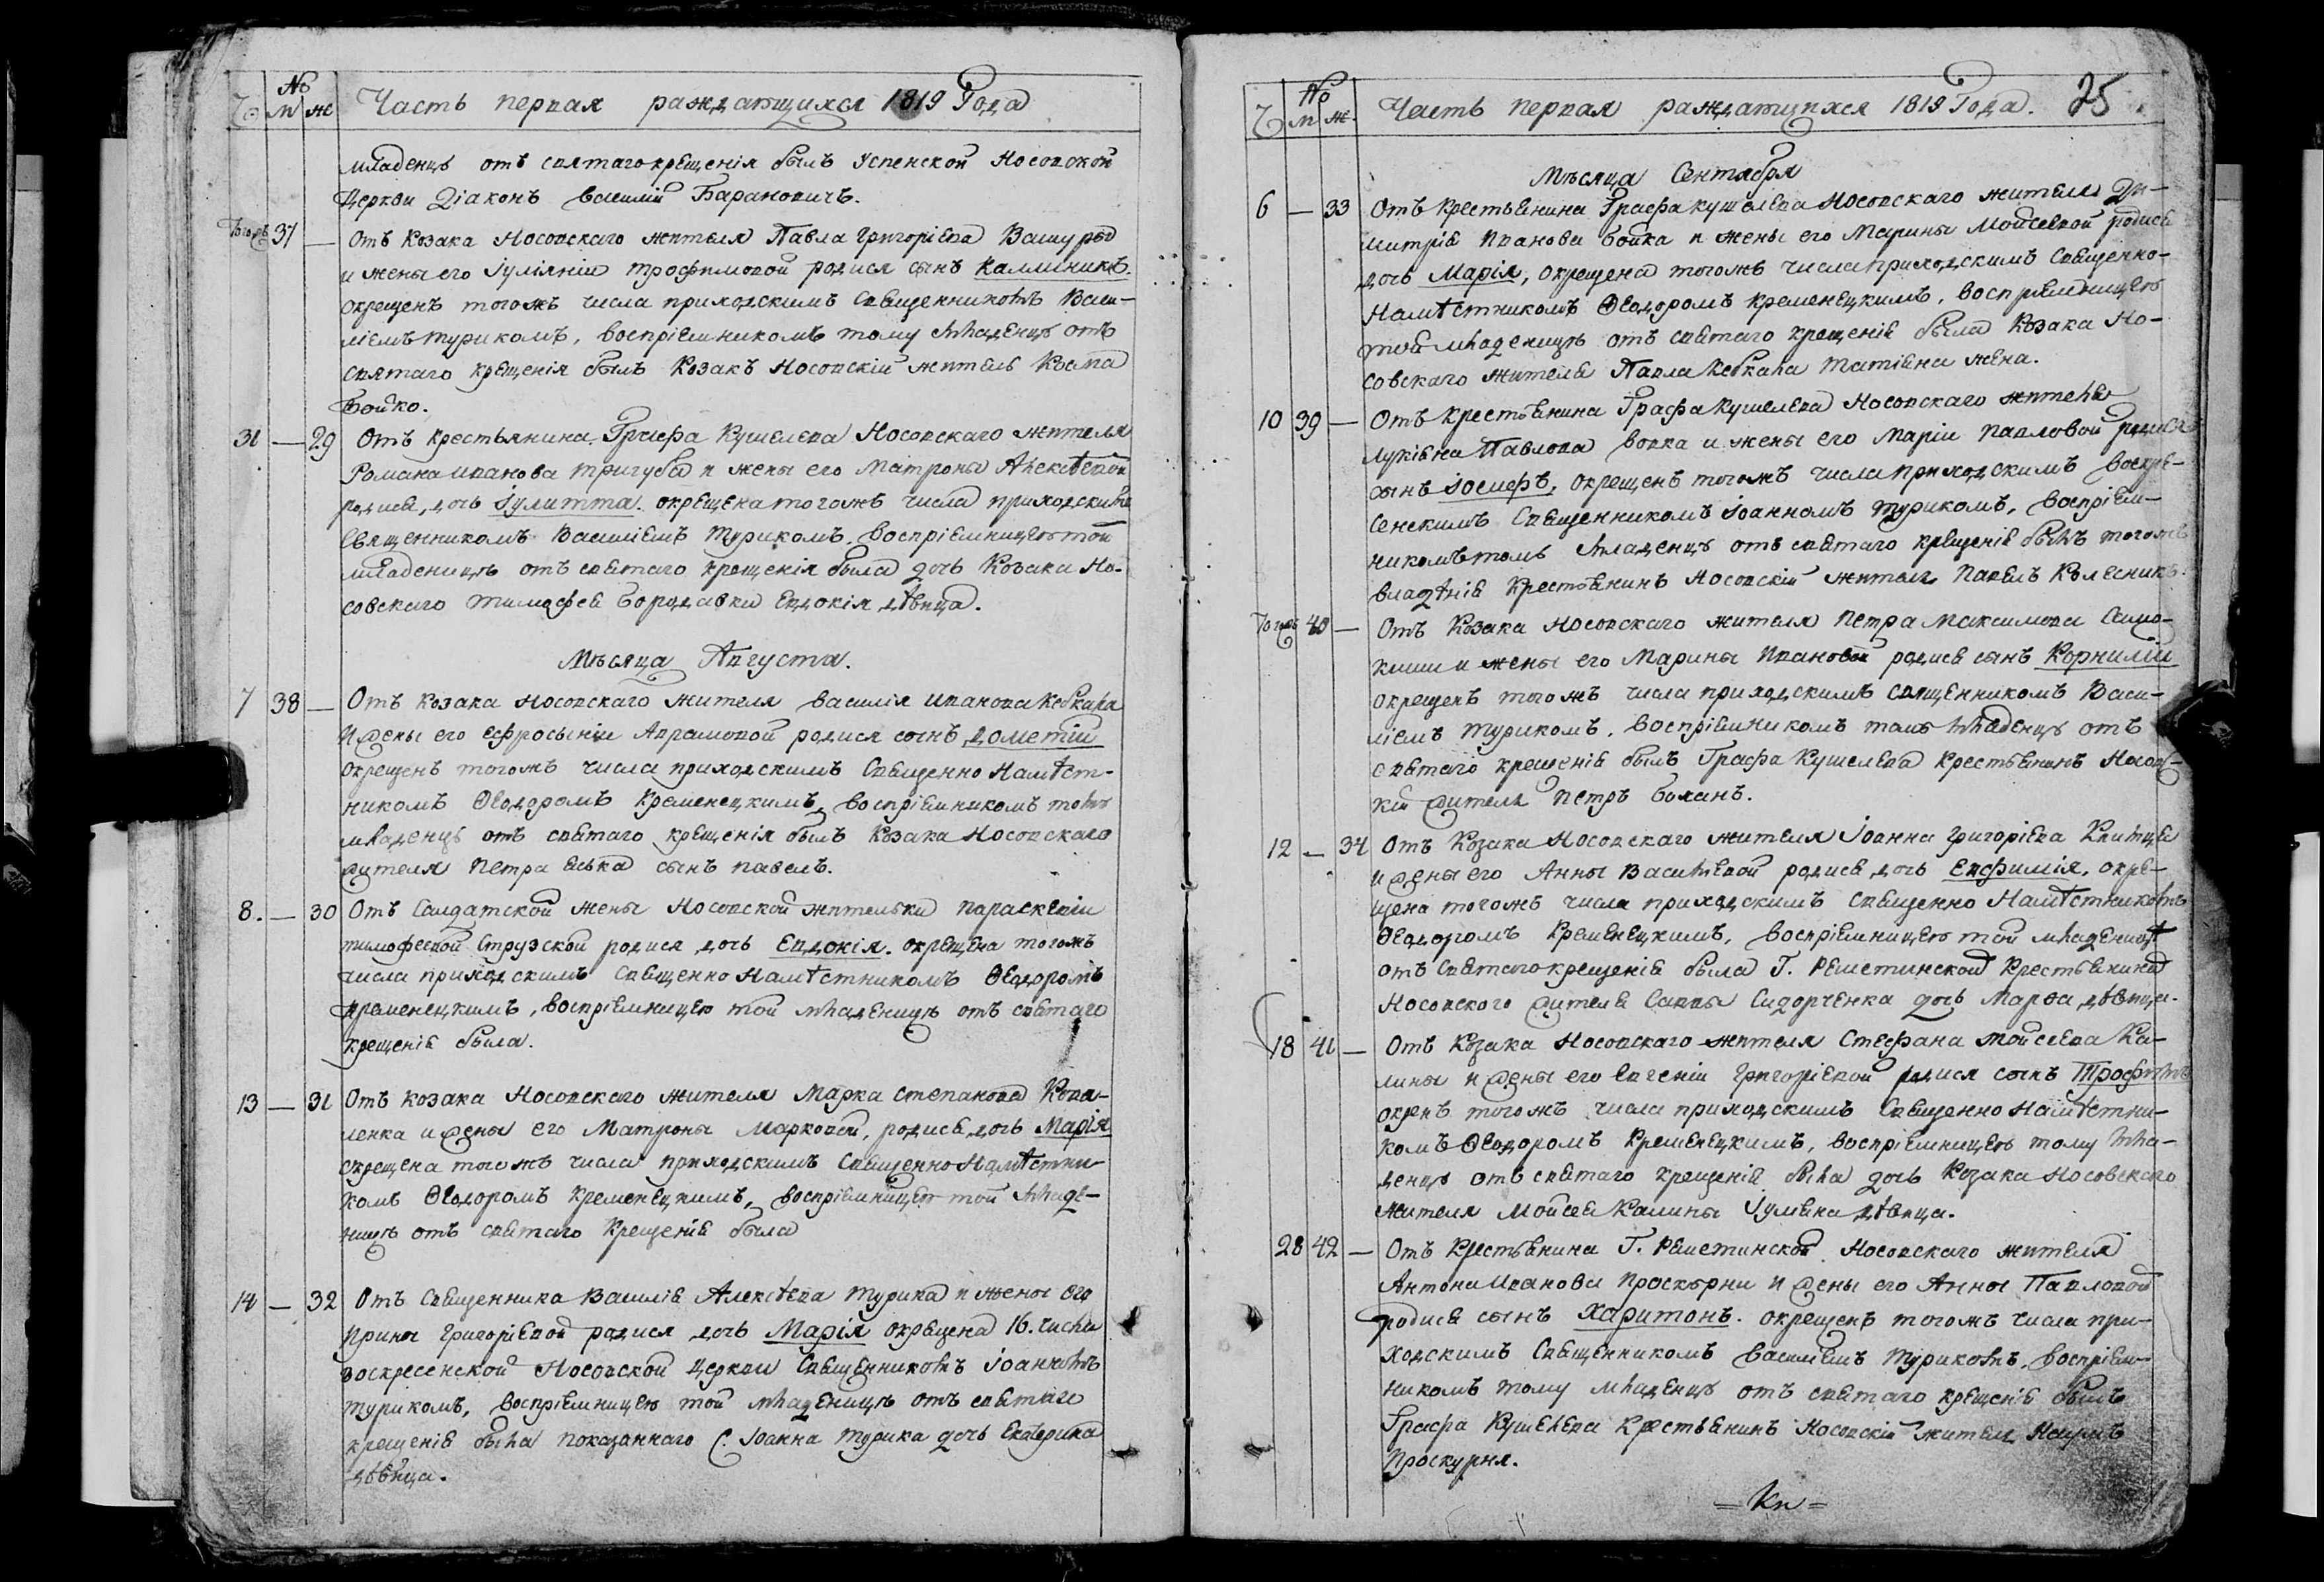 Чо № м ж Часть первая раждающихся 1819 Года
младенцѣ отъ святаго крещенія былъ Успенской Носовской
Церкви Діаконъ василий Барановичъ.
Тогожъ 37 — Отъ Козака Носовскаго жителя Павла Григоріева Вашуры
и жены его Іуліяніи трофимовой родися сынъ Каллиникъ.
окрещенъ тогожъ числа приходскимъ Священникомъ Васи-
ліемъ туркомъ, воспріемникомъ тому младенцѣ отъ
святаго крещенія былъ Козакъ Носовскій житель Косма
Бойко.
31 — 29 Отъ крестьянина Графа Кушелева Носовскаго жителя
Романа иванова тригуба и жены его Матроны Алексѣевой
родися, дочь Іулитта. окрещена тогожъ числа приходскимъ
Священникомъ Василіемъ Туриком. воспріемницею той
младеницѣ отъ святаго крещенія была дочь Козака Но-
совскаго тимофея бородавки Евдокія дѣвица.
Мѣсяца Августа.
7 38 — Отъ козака Носовскаго жителя василія иванова Кебкала
и жены его ефросиніи Аврамовой родися сынъ дометій
окрещенъ тогожъ числа приходскимъ Священно Намѣст-
никомъ Ѳеодоромъ Кременецкимъ, воспріемникомъ томъ
младенцѣ отъ святаго крещенія былъ Козака Носовскаго
жителя Петра еська сынъ павелъ.
8. — 30 Отъ Салдатской жены Носовской жительки параскевіи
тимофеевой Струзской родися дочь Евдокія. окрещена тогожъ
числа приходскимъ Священно Намѣстникомъ Ѳеодоромъ
кременецкимъ, воспріемницею той младеницѣ отъ святаго
крещенія была.
13 — 31 Отъ козака Носовскаго жителя Марка степанова Кова-
ленка и жены его Матроны Марковой, родися дочь Марія
окрещена тогожъ числа приходскимъ Священно Намѣстни-
комъ Ѳеодоромъ кременецкимъ, воспріемницею той младе-
ницѣ отъ святаго Крещенія была
14 — 32 Отъ Священника Василія Алексѣева турика и жены его
Ирины григоріевой родися дочь Марія окрещена 16. числа
воскресенской Носовской Церкви Священникомъ Іоанномъ
туриком, воспріемницею той младеницѣ отъ святаго
крещенія была показаннаго С. Іоанна турика дочь Екатерина
дѣвица.
Ч № м ж. Часть первая раждающихся 1819 Года. 25
Мѣсяца Сентября
6 — 33 Отъ крестьянина Графа кушелева Носовскаго жителя Ди-
митрія иванова бойка и жены его Марины Мойсеевой родися
дочь Марія, окрещена тогожъ числа приходскимъ Священно-
Намѣстникомъ Ѳеодоромъ кременецкимъ, воспріемницею
той младеницѣ отъ святаго крещенія была Козака Но-
совскаго жителя Павла Кебкала татіяна жена.
10 39 — Отъ крестьянина Графа кушелева Носовскаго жителя
лукіяна Павлова вовка и жены его Маріи павловой родися
сынъ Іосифъ, окрещенъ тогожъ числа приходскимъ воскре-
сенскимъ Священникомъ Іоанномъ туриком, воспріем-
никомъ томъ младенцѣ отъ святаго крещенія былъ тогожъ
владѣнія крестьянинъ Носовскій житель павелъ Колесникъ.
Тогожъ 40 — Отъ Козака Носовскаго жителя Петра максимова Само-
киши и жены его Марины Ивановой родися сынъ Корнилій
окрещенъ тогожъ числа приходскимъ священникомъ Васи-
ліемъ туриком, воспріемникомъ томъ младенцѣ отъ
святаго крещенія былъ Графа Кушелева Крестьянинъ Носовс-
кій житель петръ боханъ.
12 — 34 Отъ Козака Носовскаго жителя Іоанна григоріева Квитцы
и жены его Анны Васильевой родися дочь Евфимія, окре-
щена тогожъ числа приходскимъ священно Намѣстникомъ
Ѳеодоромъ Кременецкимъ, воспріемницею той младеницѣ
отъ Святаго крещенія была Г. Решетинской Крестьянина
Носовского жителя Саввы Сидорченка дочь Марѳа, дѣвица.
18 41 — Отъ Козака Носовскаго жителя Стефана мойсеева Ка-
лины и жены его Евгеніи григоріевой родися сынъ Трофимъ
окренъ тогожъ числа приходскимъ Священно Намѣстни-
комъ Ѳеодоромъ Кременецкимъ, воспріемницею тому мла-
денцѣ отъ святаго крещенія была дочь Козака Носовскаго
жителя Мойсея Калины Іуліяна дѣвица.
28 42 — Отъ Крестьянина Г. Решетинской Носовскаго жителя
Антона иванова Проскурни и жены его Анны Павловой
родися сынъ Харитонъ. окрещенъ тогожъ числа при-
ходскимъ Священникомъ василіемъ Туриком, воспріем-
никомъ тому младенцѣ отъ святаго крещенія былъ
Графа Кушелева Крестьянинъ Носовскій житель Наумъ
Проскурня.
= Кн =